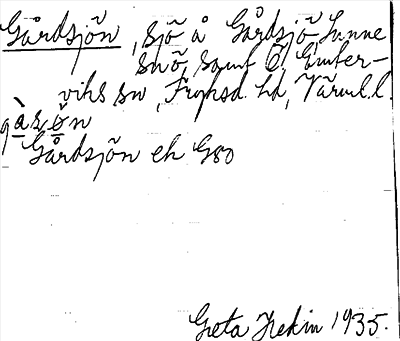 Gårdsjön, sjö å Gårdsjö, Sunne
snö, samt Ö. Ämter-
viks sn, Fryksd. hd, Värml. l.
Gårdsjön ek G80
Greta 1935.